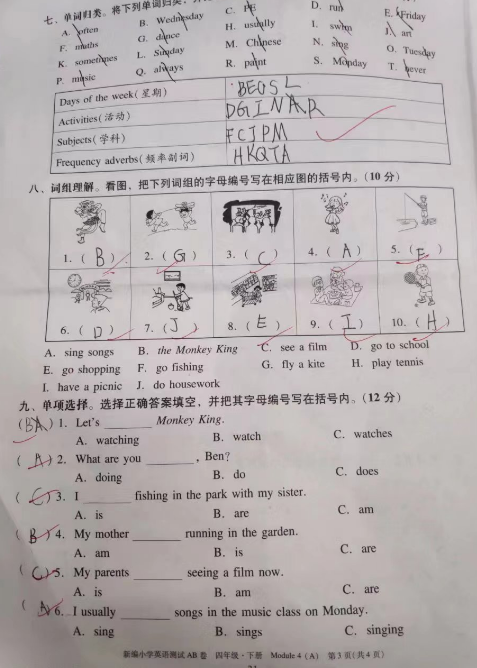 七、单词归类。将下列单词归类
A. often B. Wednesday C. PE D. run E. Friday
F. maths G. dance H. usually I. swim J. art
K. sometimes L. Sunday M. Chinese N. sing O. Tuesday
P. music Q. always R. paint S. Monday T. never
Days of the week(星期) BEOSL
Activities(活动) DGINAR
Subjects(学科) FCJPM
Frequency adverbs(频率副词) HKQTA
八、词组理解。看图,把下列词组的字母编号写在相应图的括号内。(10分)
1. ( B ) 2. ( G ) 3. ( C ) 4. ( A ) 5. ( F )
6. ( D ) 7. ( J ) 8. ( E ) 9. ( I ) 10. ( H )
A. sing songs B. the Monkey King C. see a film D. go to school
E. go shopping F. go fishing G. fly a kite H. play tennis
I. have a picnic J. do housework
九、单项选择。选择正确答案填空,并把其字母编号写在括号内。(12分)
( BA ) 1. Let's ______ Monkey King.
A. watching B. watch C. watches
( A ) 2. What are you ______, Ben?
A. doing B. do C. does
( C ) 3. I ______ fishing in the park with my sister.
A. is B. are C. am
( B ) 4. My mother ______ running in the garden.
A. am B. is C. are
( C ) 5. My parents ______ seeing a film now.
A. is B. am C. are
( A ) 6. I usually ______ songs in the music class on Monday.
A. sing B. sings C. singing
新编小学英语测试AB卷 四年级·下册 Module 4 (A) 第3页(共4页)